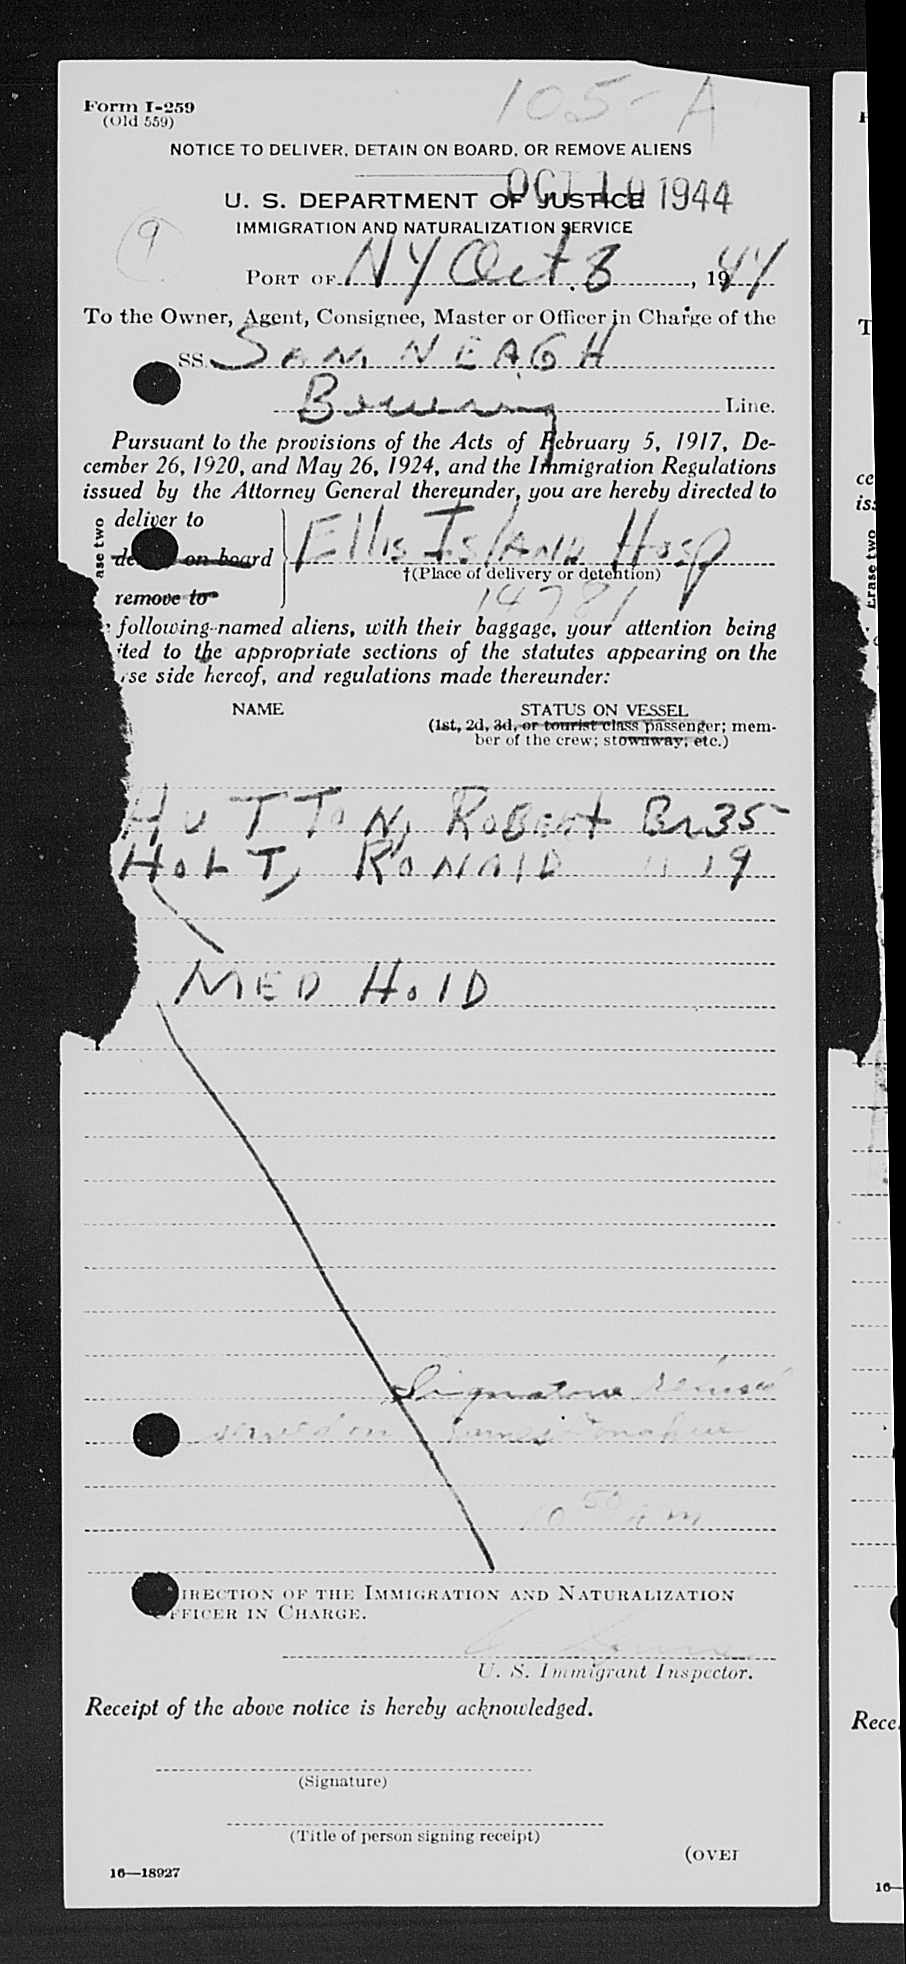 105-A
Form I-259
(Old 559)
NOTICE TO DELIVER, DETAIN ON BOARD, OR REMOVE ALIENS
OCT 10 1944
U. S. DEPARTMENT OF JUSTICE
IMMIGRATION AND NATURALIZATION SERVICE
9
PORT OF NY Oct. 8, 1944
To the Owner, Agent, Consignee, Master or Officer in Charge of the
SS. SAM NEAGH
Bowring Line.
Pursuant to the provisions of the Acts of February 5, 1917, De-
cember 26, 1920, and May 26, 1924, and the Immigration Regulations
issued by the Attorney General thereunder, you are hereby directed to
deliver to
on board
remove to
ase two
Ellis ISLAND Hosp
†(Place of delivery or detention)
14781
following-named aliens, with their baggage, your attention being
ited to the appropriate sections of the statutes appearing on the
rse side hereof, and regulations made thereunder:
NAME STATUS ON VESSEL
(1st, 2d, 3d, or tourist class passenger; mem-
ber of the crew; stowaway; etc.)
HUTTON, ROBERT Br 35
HOLT, RONALD " 19
MED HOLD
Signature refused
served on James Donahue
10 50 AM
IRECTION OF THE IMMIGRATION AND NATURALIZATION
FFICER IN CHARGE.
U. S. Immigrant Inspector.
Receipt of the above notice is hereby acknowledged.
(Signature)
(Title of person signing receipt)
(OVER
16—18927
Erase two
Rece
16—